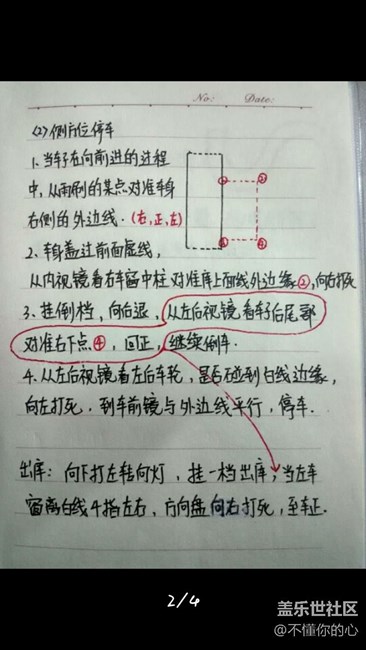 No:
Date:
(2) 侧方位停车
1. 当车子在向前进的过程
中, 从雨刷的某点对准车身
右侧的外边线.(右,正,左)
2. 车身盖过前面虚线,
从内视镜看右车窗中柱对准库上面线外边缘②,向右打死
3. 挂倒档, 向后退, 从左后视镜看车子后尾部
对准右下点④, 回正, 继续倒车.
4. 从左后视镜看左后车轮, 是否碰到白线边缘,
向左打死. 到车前镜与外边线平行, 停车.
出库: 向下打左转向灯, 挂一档出库, 当左车
窗离白线4指左右, 方向盘向右打死, 至车正.
2/4
盖乐世社区
@不懂你的心